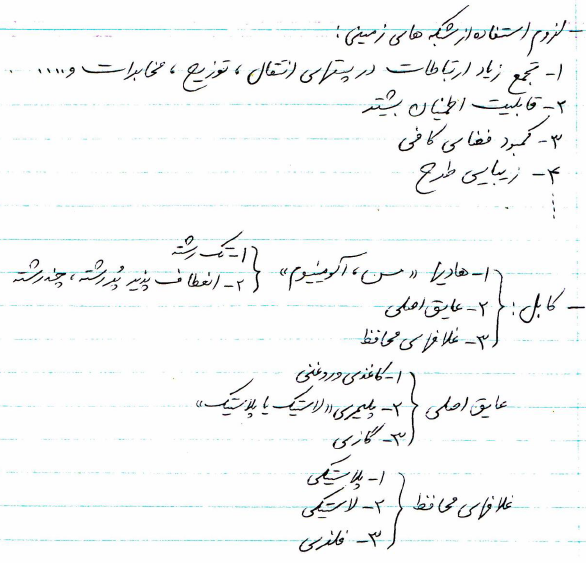 - لزوم استفاده از شبکه های زمینی :
۱- تجمع زیاد ارتباطات در پستهای انتقال ، توزیع ، مخابرات و .....
۲- قابلیت اطمینان بیشتر
۳- کمبود فضای کافی
۴- زیبایی طرح
- کابل :
۱- هادیها «مس ، آلومینیوم»
۱- تک رشته
۲- انعطاف پذیر پُررشته ، چندرشته
۲- عایق اصلی
۳- غلافهای محافظ
عایق اصلی
۱- کاغذی و روغنی
۲- پلیمری «لاستیک یا پلاستیک»
۳- گازی
غلافهای محافظ
۱- پلاستیکی
۲- لاستیکی
۳- فلزی